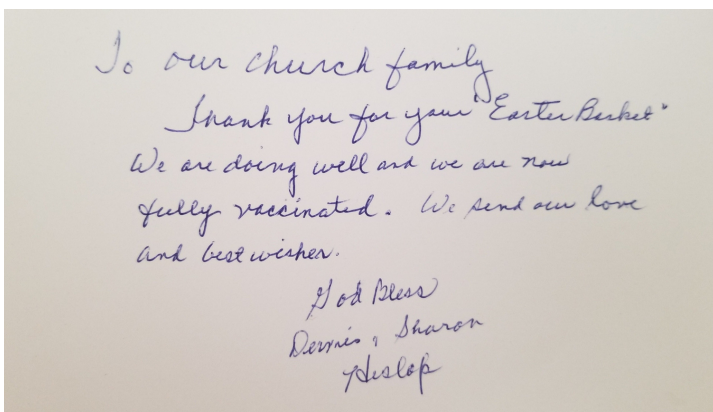 To our church family
Thank you for your "Easter Basket"
We are doing well and we are now
fully vaccinated. We send our love
and best wishes.
God Bless
Dennis, Sharon
Heslop